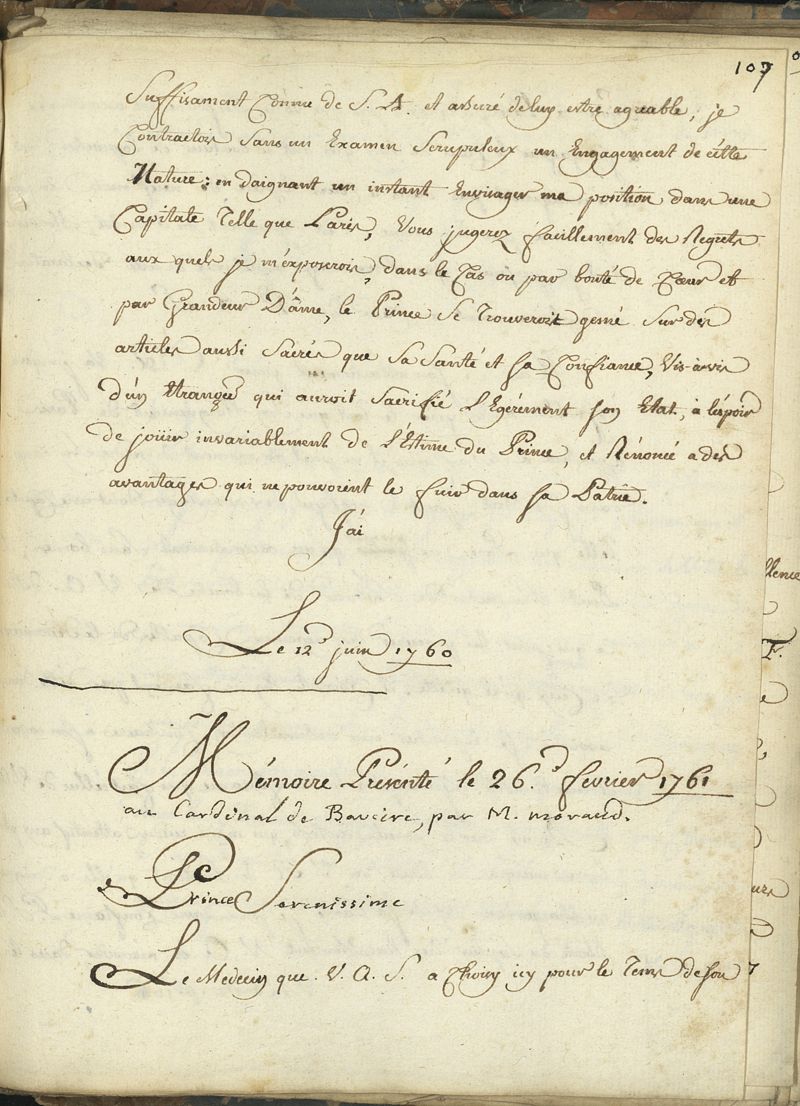 107
Suffisament Connu de S. A. et assuré de luy estre agreable, je
Contractois Sans un Examen Scrupuleux un Engagement de cette
Nature: en daignant un instant Envisager ma position dans une
Capitale Telle que Paris, Vous jugerez facillement des Regrets
aux quels je m'exposerois, dans le Cas ou par bonté de Cœur et
par Grandeur D'âme, le Prince Se Trouveroit gesné Sur des
articles aussi Sacrés que Sa Santé et sa Confiance, Vis-à-vis
d'un Etranger qui auroit Sacrifié Légérement son Etat, à l'espoir
de joüir invariablement de l'Estime du Prince, et Rénoncé a des
avantages qui ne pouvoient le fuir dans sa Patrie.
J'ai
Le 12e juin 1760
Mémoire Présenté le 26e fevrier 1761
au Cardinal de Baviere, par M. morand.
Prince Serenissime
Le Medecin que V. A. S. a Choisy icy pour le Tems de son